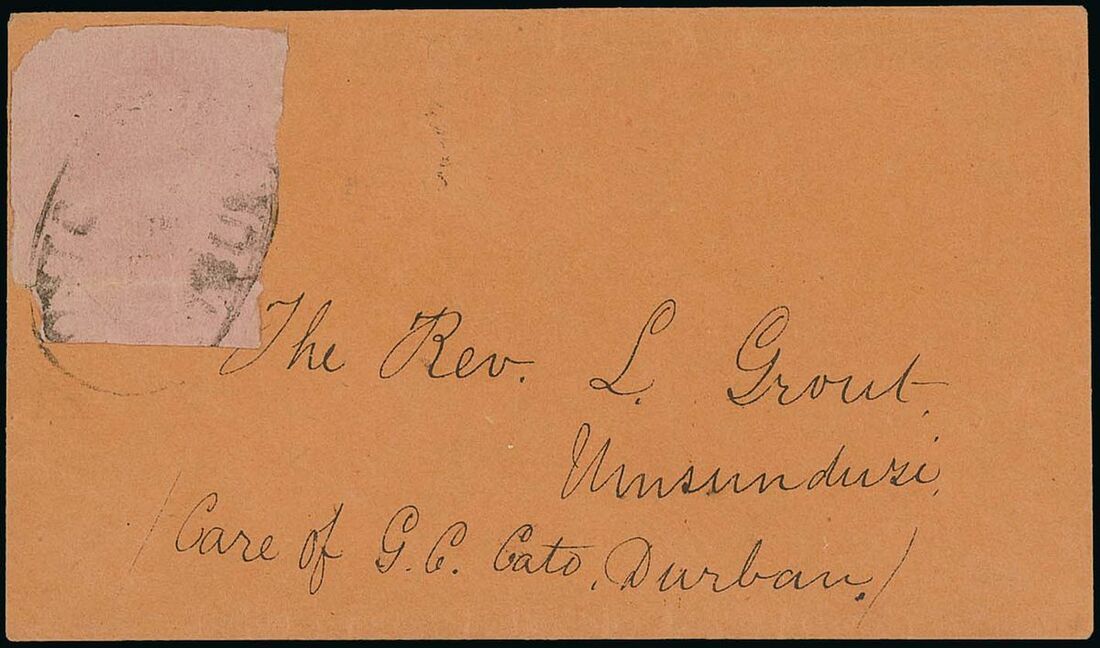 The Rev. L. Grout,
Umsunduzi,
/Care of G. C. Cato, Durban./